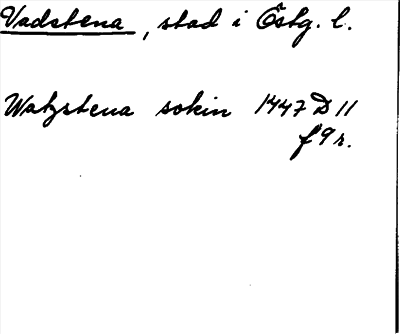 Vadstena, stad i Östg. l.
Watzstena sokin 1447 D 11
f 9 r.